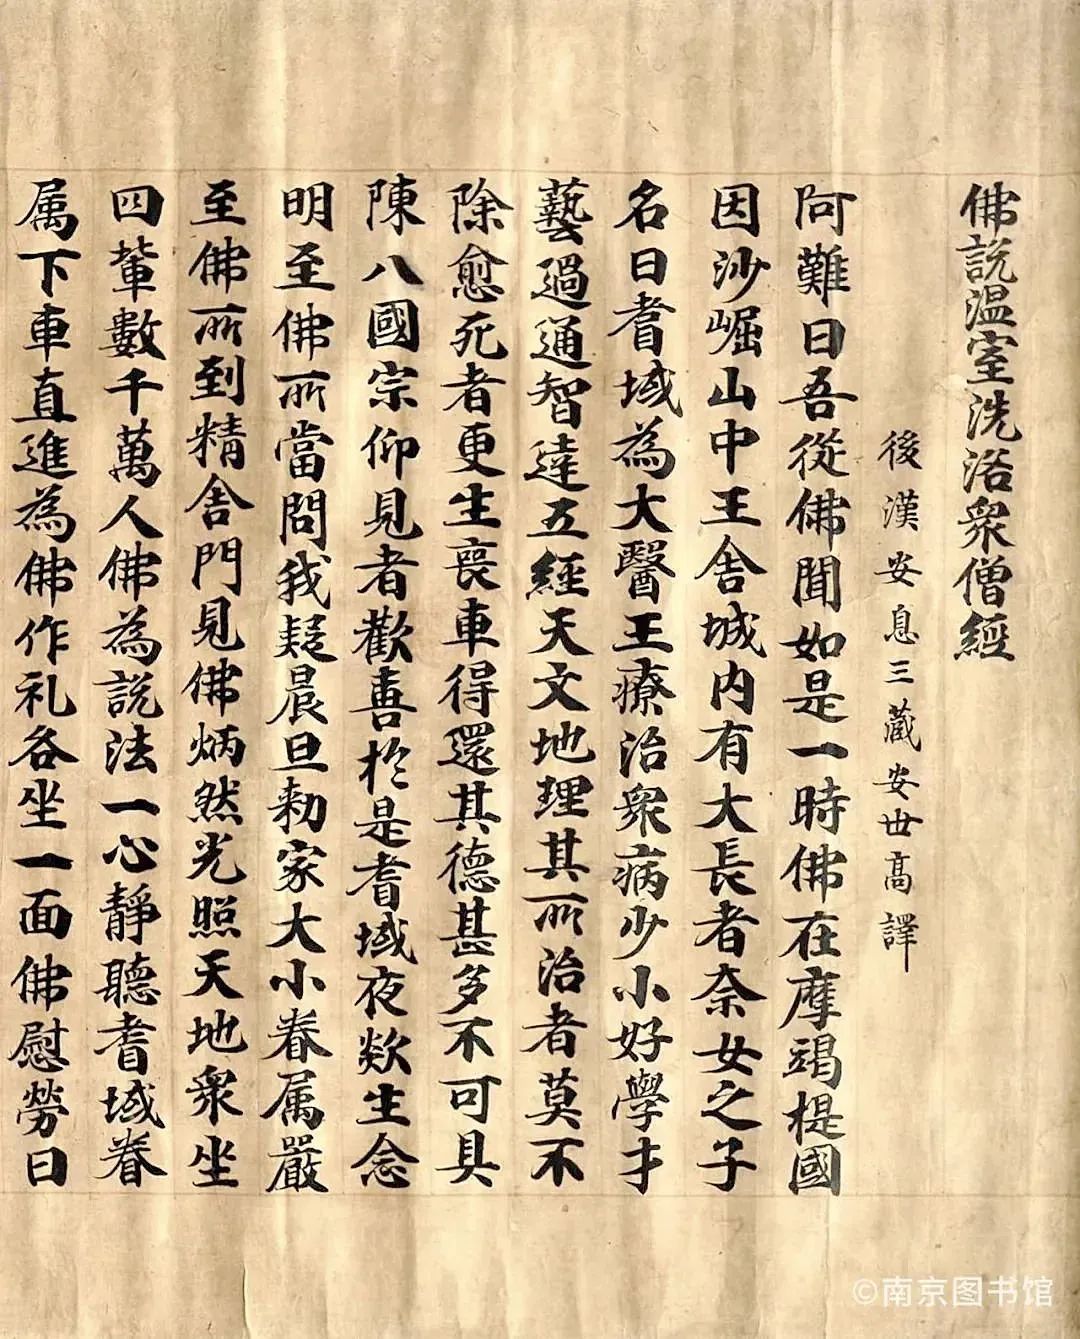 佛説温室洗浴衆僧經
後漢安息三藏安世高譯
阿難曰吾從佛聞如是一時佛在摩竭提國
因沙崛山中王舍城内有大長者柰女之子
名曰耆域為大醫王療治衆病少小好學才
藝過通智達五經天文地理其所治者莫不
除愈死者更生喪車得還其德甚多不可具
陳八國宗仰見者歡喜於是耆域夜欻生念
明至佛所當問我疑晨旦勑家大小眷属嚴
至佛所到精舍門見佛炳然光照天地衆坐
四輩數千萬人佛為説法一心靜聽耆域眷
属下車直進為佛作礼各坐一面佛慰勞曰
©南京图书馆